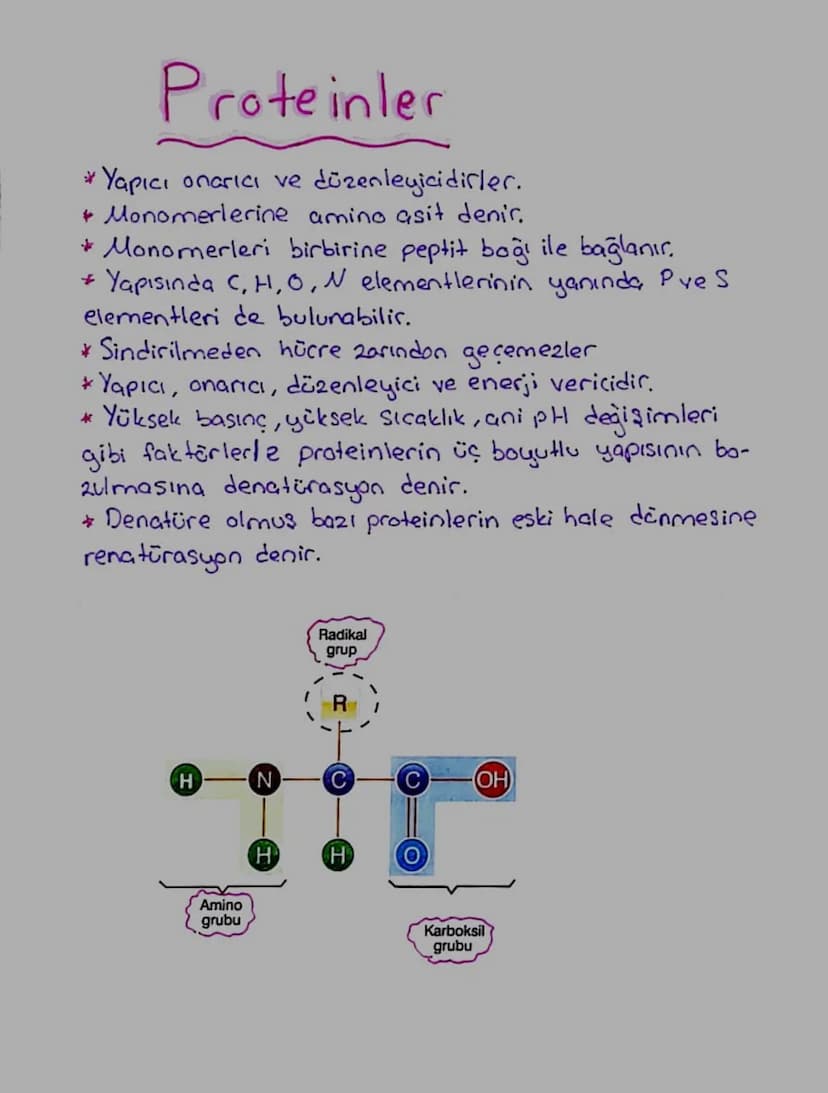 Proteinler
* Yapıcı onarıcı ve düzenleyicidirler.
* Monomerlerine amino asit denir.
* Monomerleri birbirine peptit bağı ile bağlanır.
* Yapısında C, H, O, N elementlerinin yanında P ve S
elementleri de bulunabilir.
* Sindirilmeden hücre zarından geçemezler
* Yapıcı, onarıcı, düzenleyici ve enerji vericidir.
* Yüksek basınç, yüksek sıcaklık, ani pH değişimleri
gibi faktörlerle proteinlerin üç boyutlu yapısının bo-
zulmasına denatürasyon denir.
* Denatüre olmuş bazı proteinlerin eski hale dönmesine
renatürasyon denir.
Radikal
grup
R
H N C C OH
H H O
Amino
grubu
Karboksil
grubu